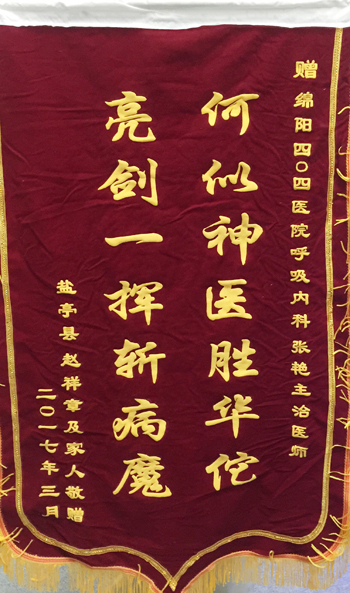 赠 绵阳四〇四医院呼吸内科 张艳主治医师
何似神医胜华佗
亮剑一挥斩病魔
盐亭县 赵祥章及家人敬赠
二〇一七年三月